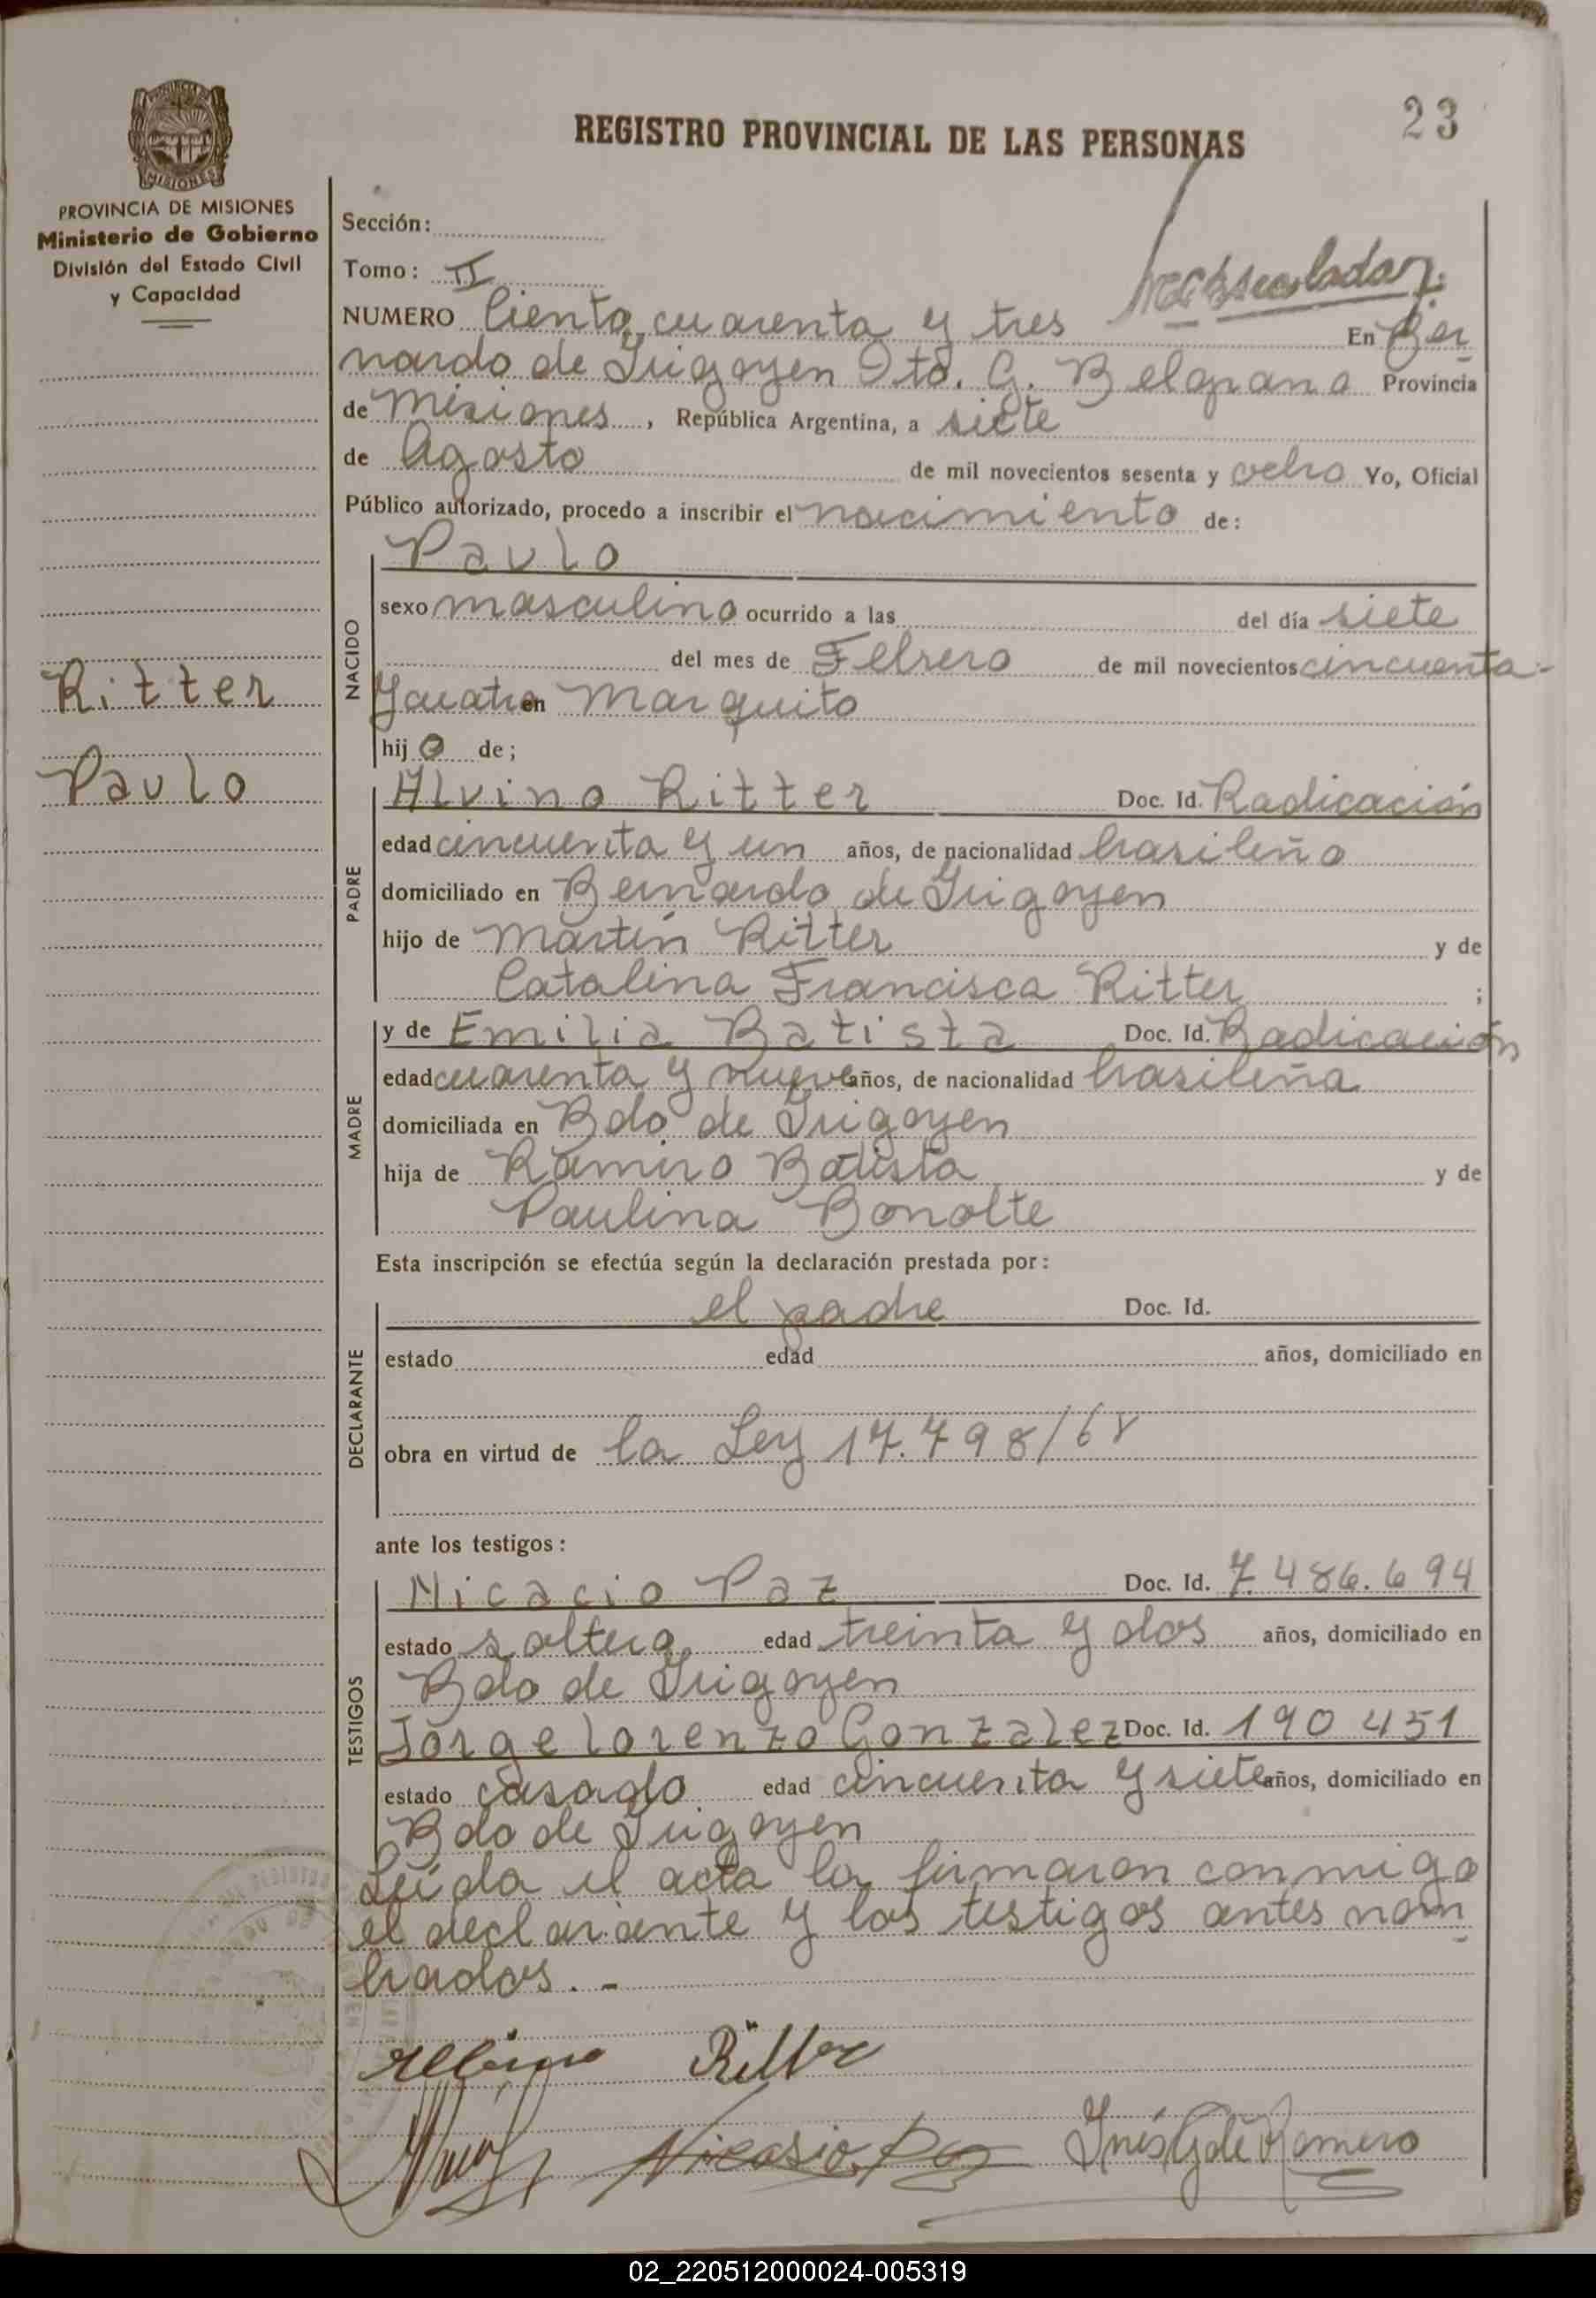 23
REGISTRO PROVINCIAL DE LAS PERSONAS
PROVINCIA DE MISIONES
Ministerio de Gobierno
División del Estado Civil
y Capacidad
Ritter
Paulo
Sección:
Tomo: II
NUMERO Ciento cuarenta y tres En Ber
nardo de Irigoyen Dto. G. Belgrano Provincia
de Misiones, República Argentina, a siete
de Agosto de mil novecientos sesenta y ocho Yo, Oficial
Público autorizado, procedo a inscribir el nacimiento de:
Paulo
NACIDO
sexo masculino ocurrido a las del día siete
del mes de Febrero de mil novecientos cincuenta
y cuatro en Marquito
hijo de;
PADRE
Alvino Ritter Doc. Id. Radicación
edad cincuenta y un años, de nacionalidad brasileño
domiciliado en Bernardo de Irigoyen
hijo de Martín Ritter y de
Catalina Francisca Ritter;
MADRE
y de Emilia Batista Doc. Id. Radicación
edad cuarenta y nueve años, de nacionalidad brasileña
domiciliada en Bdo de Irigoyen
hija de Ramiro Batista y de
Paulina Bonolte
Esta inscripción se efectúa según la declaración prestada por:
DECLARANTE
el padre Doc. Id.
estado edad años, domiciliado en
obra en virtud de la Ley 17.798/68
ante los testigos:
TESTIGOS
Nicacio Paz Doc. Id. 7.486.694
estado soltero edad treinta y dos años, domiciliado en
Bdo de Irigoyen
Jorge Lorenzo Gonzalez Doc. Id. 190 451
estado casado edad cincuenta y siete años, domiciliado en
Bdo de Irigoyen
Leída el acta la firmaron conmigo
el declarante y los testigos antes nom
brados. -
Ritter
Nicasio Paz Inés G de Romero
02_220512000024-005319